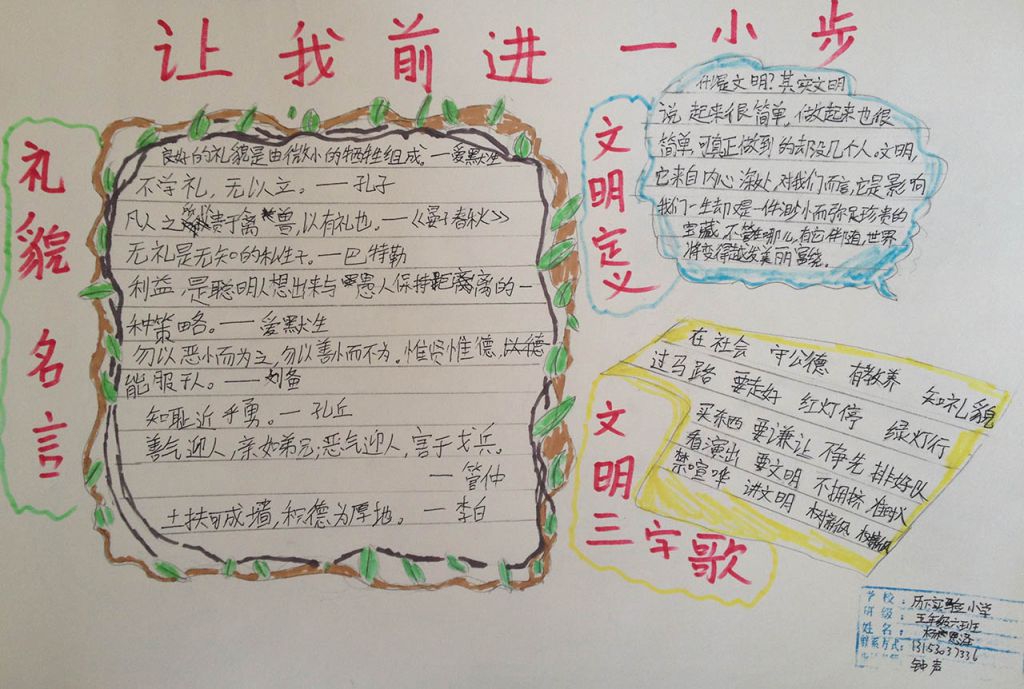 让我前进一小步
礼貌名言
良好的礼貌是由微小的牺牲组成。—爱默生
不学礼，无以立。——孔子
凡人之贵于禽兽，以有礼也。—《晏子春秋》
无礼是无知的私生子。—巴特勒
利益，是聪明人想出来与愚人保持距离的一
种策略。——爱默生
勿以恶小而为之，勿以善小而不为。惟贤惟德，
能服于人。——刘备
知耻近乎勇。—孔丘
善气迎人，亲如弟兄；恶气迎人，害于戈兵。
—管仲
土扶可成墙，积德为厚地。—李白
文明定义
什么是文明？其实文明
说起来很简单，做起来也很
简单，可真正做到的却没几个人。文明，
它来自内心深处，对我们而言，它是影响
我们一生却是一件渺小而弥足珍贵的
宝藏，不管在哪儿，有它伴随，世界
将变得越发美丽富饶。
文明三字歌
在社会 守公德 有教养 知礼貌
过马路 要走好 红灯停 绿灯行
买东西 要谦让 不争先 排好队
看演出 要文明 不拥挤
禁喧哗 讲文明 树新风 树新风
学校：历下实验小学
班级：五年级六班
姓名：
联系方式：13153037336
钟声